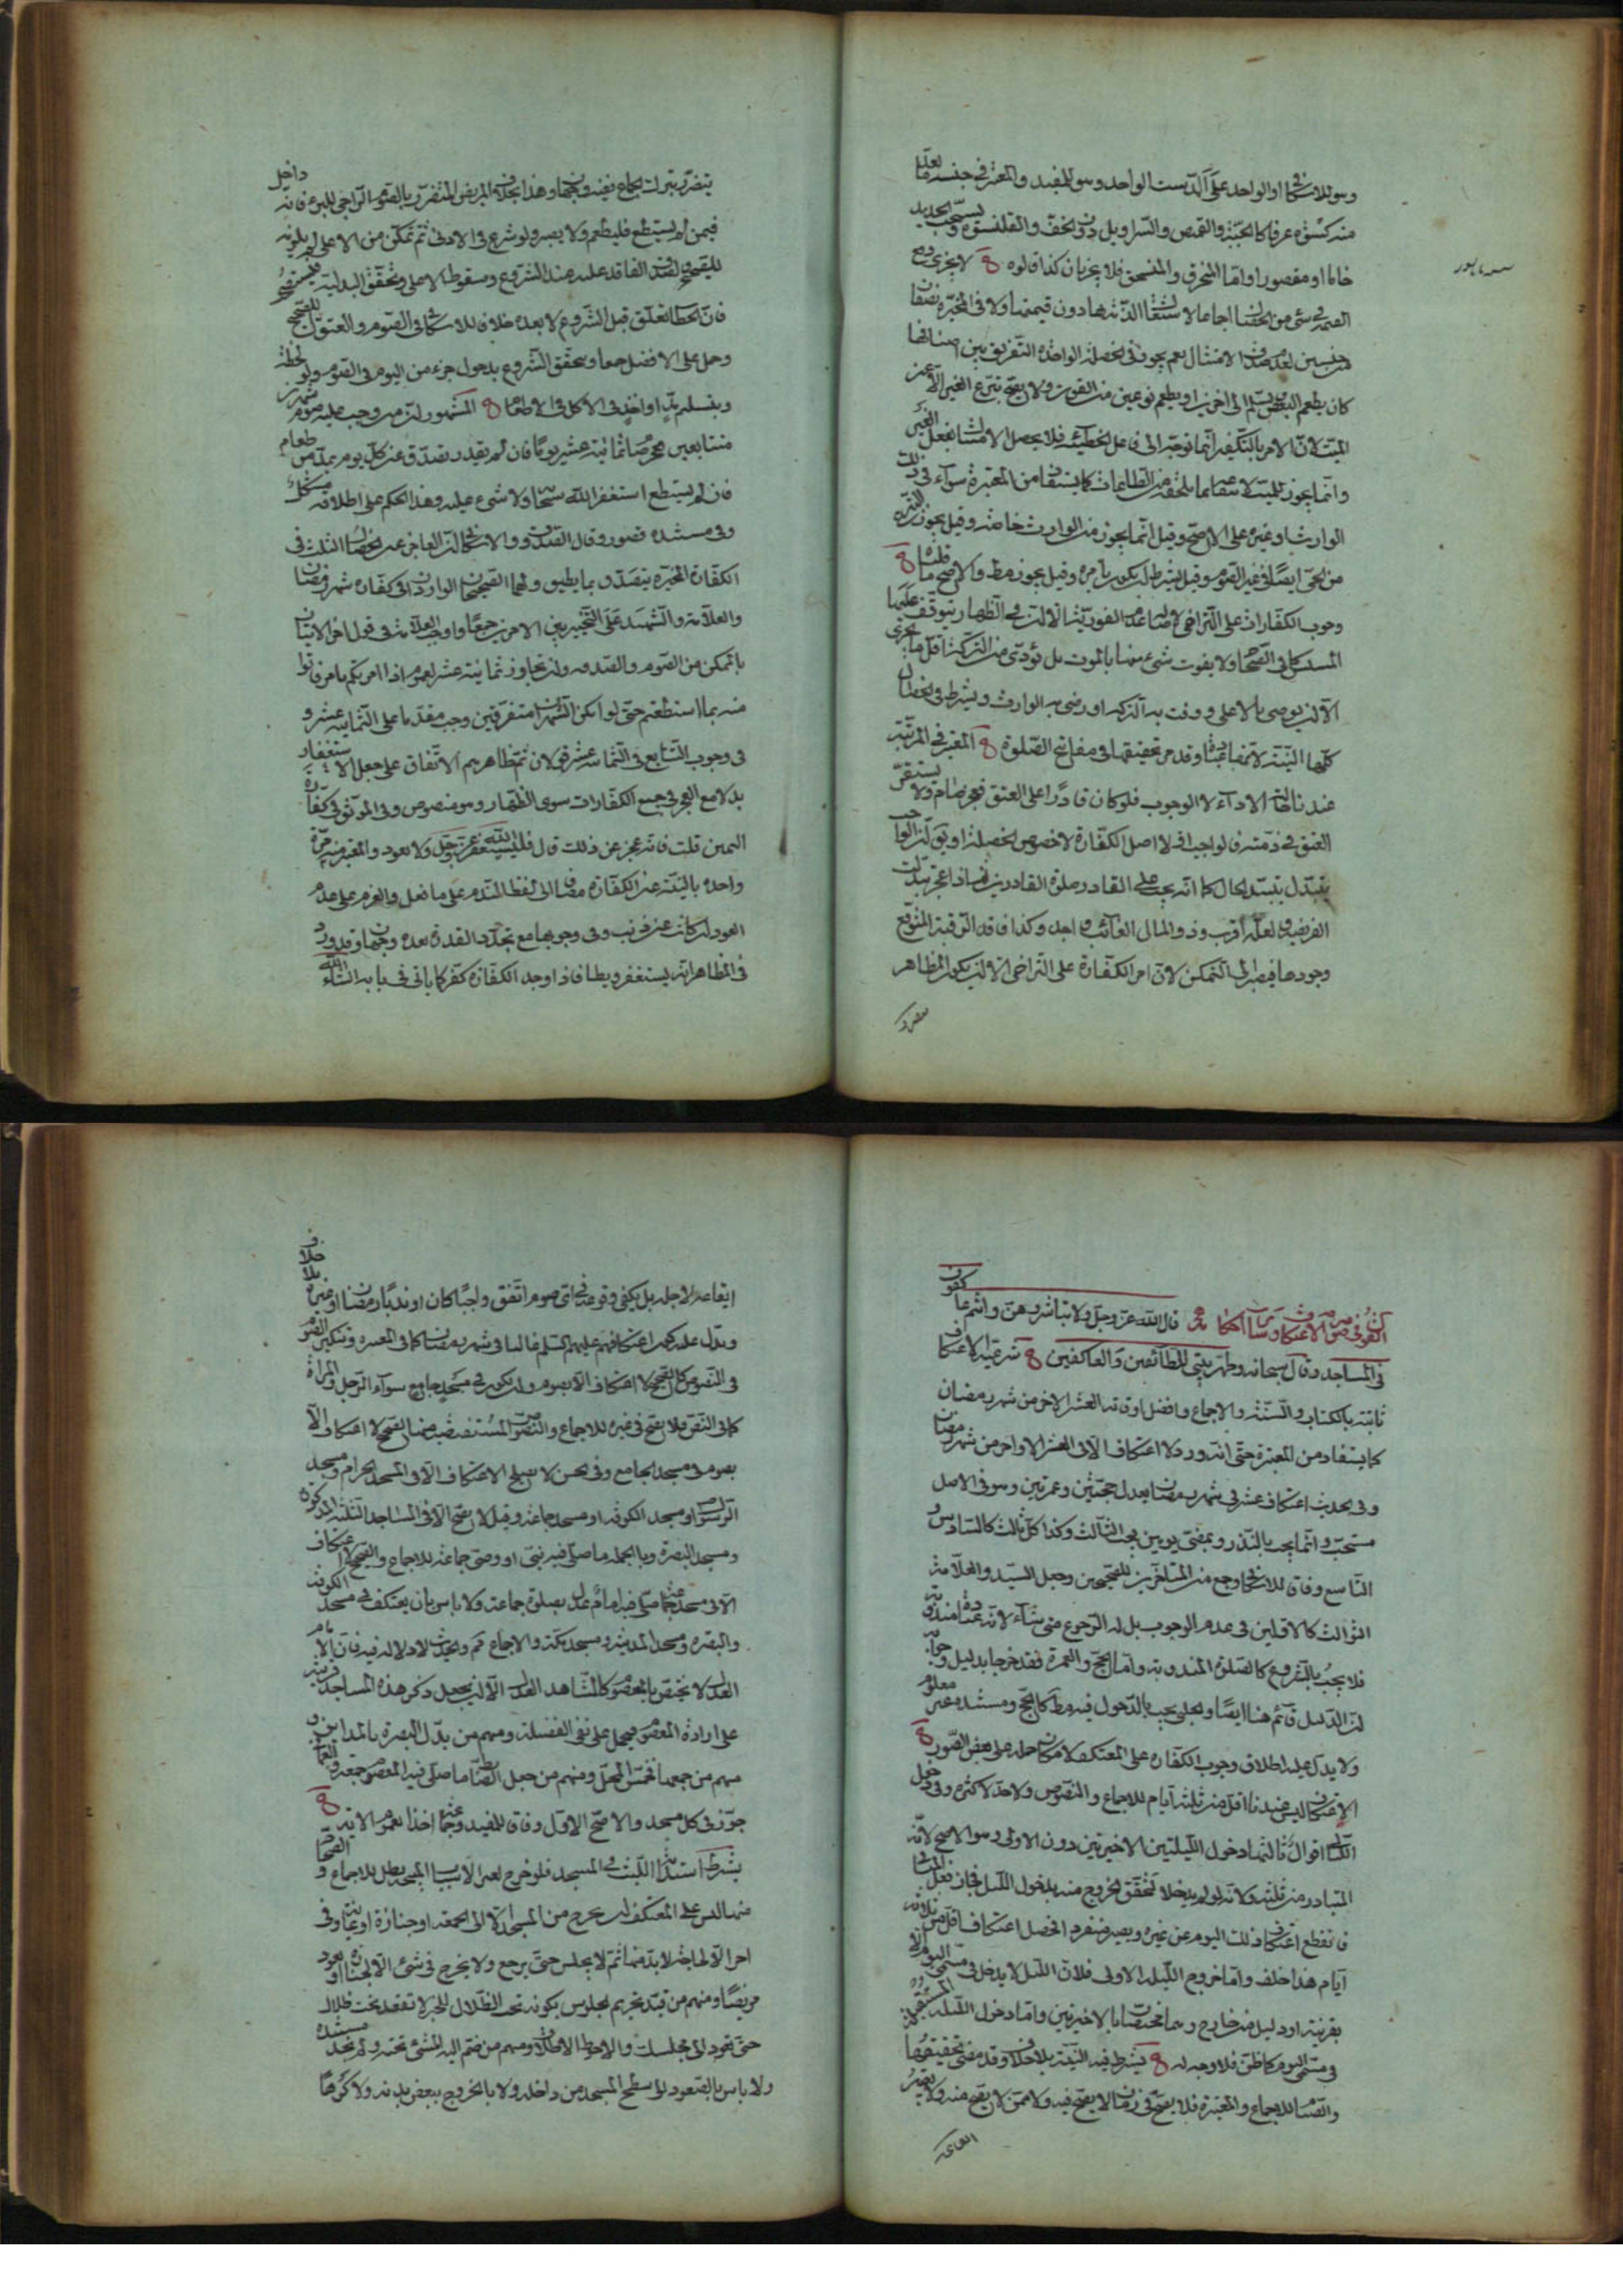 وهو للاسكافي او الواحد علی الدست الواحد وهو للمفيد والمعتبر في جنسه ما يعد
منه كسوة عرفا كالجبة والقميص والسراويل دون الخف والقلنسوة ويستحب الجديد
خاما او مقصورا واما المنخرق والمنسحق فلا يجزيان كذا قالوه لا يجزی دفع
القيمة في شيء من الخصال اجماعا لاشتغال الذمة بها دون قيمتها ولا في المخيرة نصفان
من جنسين لعدم صدق الامتثال نعم يجوز في الخصلة الواحدة التفريق بين اصنافها
كان يطعم البعض ويسلم الی اخرين او يطعم نوعين من القوت ولا يصح تبرع الغير الا عن
الميت لان الامر بالتكفير انما توجه الی فاعل الخطيئة فلا يحصل الامتثال بفعل الغير
وانما يجوز للميت لا سقاط ما يلحقه من الطاعات كما يستفاد من المعتبرة سواء في ذلك
الوارث او غيره علی الاصح وقيل انما يجوز من الوارث خاصة وقيل يجوز التبرع
من الحي ايضا في غير الصوم وقيل يشترط ان يكون بامره وقيل يجوز مط والاصح ما قلناه
وجوب الكفارات علی التراخي لاصالة عدم الفورية الا ان في الظهار يتوقف عليها
المسيس كما في الصحاح ولا يفوت شيء منها بالموت بل يؤدی من التركة اقل ما يجزی
الا ان يوصی بالاعلی ووفت به التركة او رضی به الوارث ويشترط في الخصال
كلها النية لانها عبادة وقد مر تحقيقها في مفاتيح الصلوة المعتبر في المرتبة
عندنا حالة الاداء لا الوجوب فلو كان قادرا علی العتق فعجز صام ولا يستقر
العتق في ذمته لان الواجب اصل الكفارة لا خصوص الخصلة او يقول ان الواجب
يتبدل بتبدل الحال كما انه يجب علی القادر صلوة القادرين فاذا عجز تبدلت
الفريضة ولعله اقرب وذو المال الغائب واجد وكذا فاقد الرقبة المتوقع
وجودها فيصبر الی التمكن لان امر الكفارة علی التراخي الا ان يكون المظاهر
يتضرر بترك الجماع ففيه وجهان وهذا بخلاف المريض المتضرر بالصوم الراجي للبرء فانه داخل
فيمن لم يستطع فليطعم ولا يصبر ولو شرع في الادنی ثم تمكن من الاعلی لم يلزمه
للصحيح ولصدق الفاقد عليه عند الشروع وسقوط الاعلی وتحقق البدلية فيستصحب
فان الخطاب تعلق قبل الشروع لا بعده خلافا للاسكافي في الصوم والعتق للصحيح
وحمل علی الافضل جمعا ويتحقق الشروع بدخول جزء من اليوم في الصوم ولو لحظة
وبتسليم مد او اخذ في الاكل في الاطعام المشهور ان من وجب عليه صوم شهرين
متتابعين فعجز صام ثمانية عشر يوما فان لم يقدر تصدق عن كل يوم بمد من طعام
فان لم يستطع استغفر الله سبحانه ولا شيء عليه وهذا الحكم علی اطلاقه مشكل
وفي مستنده قصور وقال الصدوق والاسكافي ان العاجز عن الخصال الثلث في
الكفارة المخيرة يتصدق بما يطيق ولهما الصحيحان الواردان في كفارة شهر رمضان
والعلامة والشهيد علی التخيير بين الامرين جمعا واوجب العلامة في قول اخر الاتيان
بالممكن من الصوم والصدقة وان تجاوز ثمانية عشر لعموم اذا امرتكم بامر فاتوا
منه بما استطعتم حتی لو امكن الشهران متفرقين وجب مقدما علی الثمانية عشر و
في وجوب التتابع في الثمانية عشر قولان ثم ظاهرهم الاتفاق علی جعل الاستغفار
بدلا مع العجز في جميع الكفارات سوی الظهار وهو منصوص وفي الموثق في كفارة
اليمين قلت فانه عجز عن ذلك قال فليستغفر الله عز وجل ولا يعود والمعتبر منه مرة
واحدة بالنية عن الكفارة مضافا الی لفظ الندم علی ما فعل والعزم علی عدم
العود ان كانت عن ذنب وفي وجوبها مع تجدد القدرة بعده وجهان وقد ورد
في المظاهر انه يستغفر ويطا فاذا وجد الكفارة كفر كما ياتي في بابه ان شاء الله
القول في صوم الاعتكاف وسائر احكامه قال الله عز وجل ولا تباشروهن وانتم عاكفون
في المساجد وقال سبحانه وطهر بيتي للطائفين والعاكفين شرعية الاعتكاف
ثابتة بالكتاب والسنة والاجماع وافضل اوقاته العشر الاخر من شهر رمضان
كما يستفاد من المعتبرة حتی انه ورد لا اعتكاف الا في العشر الاواخر من شهر رمضان
وفي الحديث اعتكاف عشر في شهر رمضان يعدل حجتين وعمرتين وهو في الاصل
مستحب وانما يجب بالنذر وبمضي يومين يجب الثالث وكذا كل ثالث كالسادس و
التاسع وفاقا للاسكافي وجمع من المتاخرين للصحيحين وجعل السيد والعلامة
الثوالث كالاولين في عدم الوجوب بل له الرجوع متی شاء لانه عبادة مندوبة
فلا يجب بالشروع كالصلوة المندوبة واما الحج والعمرة فقد خرجا بدليل وجوابه
ان الدليل قائم هنا ايضا والحلبي يجب بالدخول فيه مط كالحج ومستنده غير معلوم
ولا يدل عليه اطلاق وجوب الكفارة علی المعتكف لامكان حمله علی بعض الصور
الاعتكاف ليس عندنا اقل من ثلثة ايام للاجماع والنصوص ولا حد لاكثره وفي دخول
الليالي اقوال ثالثها دخول الليلتين الاخيرتين دون الاولی وهو الاصح لانه
المتبادر من ثلثة ولانه لو لم يدخلا لتحقق الخروج منه بدخول الليل فجاز فعل المنافي
فانقطع اعتكاف ذلك اليوم عن غيره ويصير منفردا فحصل اعتكاف اقل من ثلاثة
ايام هذا خلف واما خروج الليلة الاولی فلان الليل لا يدخل في مسمی اليوم الا
بقرينة او دليل من خارج وهما مختصان بالاخيرتين واما دخول الليلة المستقبلة
في مسمی اليوم كما ظن فلا وجه له يشترط فيه النية بلا خلاف وقد مضی تحقيقها
والصيام للاجماع والمعتبرة فلا يصح في زمان لا يصح فيه ولا ممن لا يصح منه ولا يعتبر
ايقاعه لاجله بل يكفي وقوعه في اي صوم اتفق واجبا كان او ندبا رمضانا او غيره بلا خلاف
ويدل عليه كون اعتكافهم عليهم السلم غالبا في شهر رمضان كما في المعتبرة وتنكير الصوم
في النصوص كالصحيح لا اعتكاف الا بصوم وان يكون في مسجد جامع سواء الرجل والمراة
كما في النص فلا يصح في غيره للاجماع والنصوص المستفيضة منها الصحيح لا اعتكاف الا
بصوم في مسجد الجامع وفي الحسن لا يصلح الاعتكاف الا في المسجد الحرام ومسجد
الرسول او مسجد الكوفة او مسجد جماعة وقيل لا يصح الا في المساجد الثلثة المذكورة
ومسجد البصرة وبالجملة ما صلی فيه نبي او وصي جماعة للاجماع والصحيح لا اعتكاف
الا في مسجد جماعة صلی فيه امام عدل بصلوة جماعة ولا باس بان يعتكف في مسجد الكوفة
والبصرة ومسجد المدينة ومسجد مكة والاجماع مم والحديث لا دلالة فيه فان الامام
العدل لا يختص بالمعصوم كالشاهد العدل الا ان يجعل ذكر هذه المساجد قرينة
علی ارادة المعصوم فيحمل علی نفي الفضيلة ومنهم من بدل البصرة بالمداين و
منهم من جمعها فخمس المحل ومنهم من جعل الضابط ما صلی فيه المعصوم جمعة والعماني
جوز في كل مسجد والاصح الاول وفاقا للمفيد وجماعة اخذا بعموم الاية
يشترط استدامة اللبث في المسجد فلو خرج لغير الاسباب المبيحة بطل للاجماع و الصحاح
منها ليس علی المعتكف ان يخرج من المسجد الا الی الجمعة او جنازة او غايط وفي
اخر الا لحاجة لا بد منها ثم لا يجلس حتی يرجع ولا يخرج في شيء الا لجنازة او يعود
مريضا ومنهم من قيد تحريم الجلوس بكونه تحت الظلال للخبر لا تقعد تحت ظلال
حتی تعود الی مجلسك والاحوط الاطلاق ومنهم من ضم اليه المشي تحته ولم نجد مستنده
ولا باس بالصعود الی سطح المسجد من داخله ولا بالخروج ببعض بدنه ولا كرها